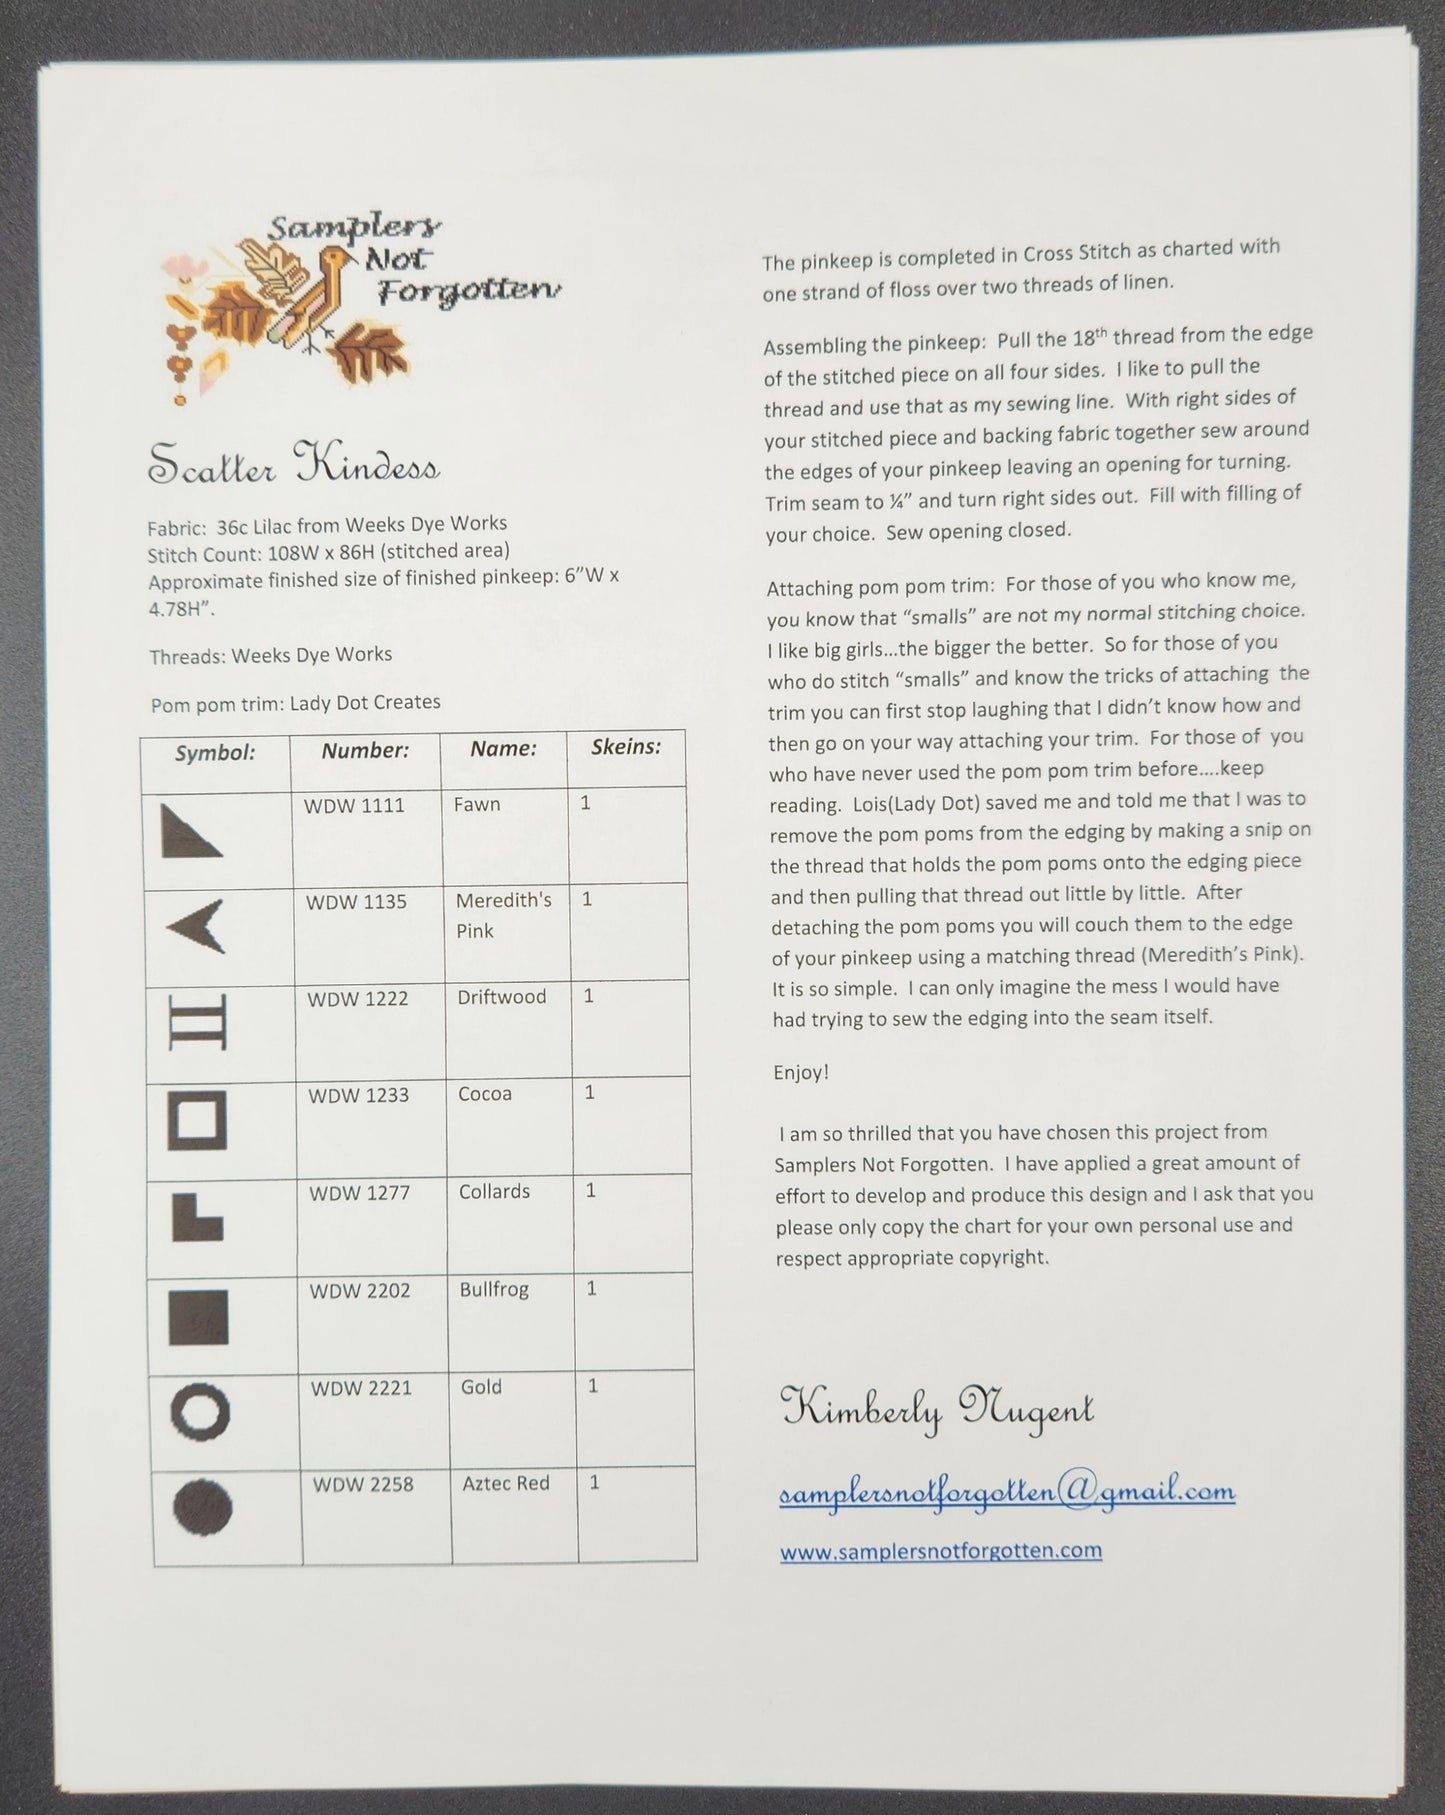 Samplers
Not
Forgotten
Scatter Kindess
Fabric:  36c Lilac from Weeks Dye Works
Stitch Count: 108W x 86H (stitched area)
Approximate finished size of finished pinkeep: 6”W x
4.78H”.
Threads: Weeks Dye Works
Pom pom trim: Lady Dot Creates
Symbol: Number: Name: Skeins:
WDW 1111 Fawn 1
WDW 1135 Meredith's 1
Pink
WDW 1222 Driftwood 1
WDW 1233 Cocoa 1
WDW 1277 Collards 1
WDW 2202 Bullfrog 1
WDW 2221 Gold 1
WDW 2258 Aztec Red 1
The pinkeep is completed in Cross Stitch as charted with
one strand of floss over two threads of linen.
Assembling the pinkeep:  Pull the 18th thread from the edge
of the stitched piece on all four sides.  I like to pull the
thread and use that as my sewing line.  With right sides of
your stitched piece and backing fabric together sew around
the edges of your pinkeep leaving an opening for turning.
Trim seam to ¼” and turn right sides out.  Fill with filling of
your choice.  Sew opening closed.
Attaching pom pom trim:  For those of you who know me,
you know that “smalls” are not my normal stitching choice.
I like big girls...the bigger the better.  So for those of you
who do stitch “smalls” and know the tricks of attaching  the
trim you can first stop laughing that I didn’t know how and
then go on your way attaching your trim.  For those of  you
who have never used the pom pom trim before....keep
reading.  Lois(Lady Dot) saved me and told me that I was to
remove the pom poms from the edging by making a snip on
the thread that holds the pom poms onto the edging piece
and then pulling that thread out little by little.  After
detaching the pom poms you will couch them to the edge
of your pinkeep using a matching thread (Meredith’s Pink).
It is so simple.  I can only imagine the mess I would have
had trying to sew the edging into the seam itself.
Enjoy!
I am so thrilled that you have chosen this project from
Samplers Not Forgotten.  I have applied a great amount of
effort to develop and produce this design and I ask that you
please only copy the chart for your own personal use and
respect appropriate copyright.
Kimberly Nugent
samplersnotforgotten@gmail.com
www.samplersnotforgotten.com